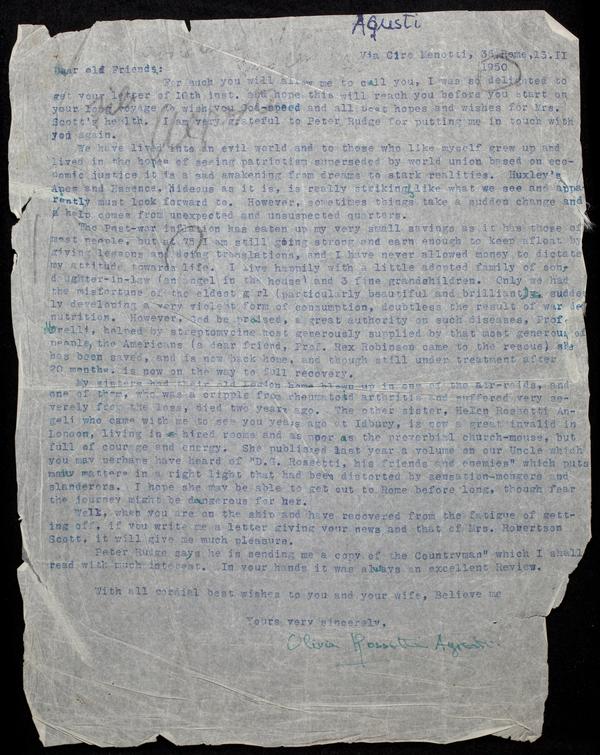 Agusti
Via Ciro Menotti, 36, Rome, 15.II
1950
Dear old Friends:
For such you will allow me to call you, I was so delighted to
get your letter of 10th inst. and hope this will reach you before you start on
your long voyage to wish you God-speed and all best hopes and wishes for Mrs.
Scott's health. I am very grateful to Peter Rudge for putting me in touch with
you again.
We have lived into an evil world and to those who like myself grew up and
lived in the hopes of seeing patriotism superseded by world union based on eco-
nomic justice it is a sad awakening from dreams to stark realities. Huxley's
Apes and Essence, hideous as it is, is really striking like what we see and appa-
rently must look forward to. However, sometimes things take a sudden change and
a help comes from unexpected and unsuspected quarters.
The Past-war inflation has eaten up my very small savings as it has those of
most people, but at 75 I am still going strong and earn enough to keep afloat by
giving lessons and doing translations, and I have never allowed money to dictate
my attitude towards life. I live happily with a little adopted family of son,
daughter-in-law (an angel in the house) and 3 fine grandchildren. Only we had
the misfortune of the eldest girl (particularly beautiful and brilliant) sudden
ly developing a very violent form of consumption, doubtless the result of war de
nutrition. However, God be praised, a great authority on such diseases, Prof.
Morelli, helped by streptomycine most generously supplied by that most generous of
people, the Americans (a dear friend, Prof. Rex Robinson came to the rescue) she
has been saved, and is now back home, and though still under treatment after
20 months, is now on the way to full recovery.
My sisters had their old London home blown up in one of the air-raids, and
one of them, who was a cripple from rheumatoid arthritis and suffered very se-
verely from the loss, died two years ago. The other sister, Helen Rossetti An-
geli who came with me to see you years ago at Idbury, is now a great invalid in
London, living in hired rooms and as poor as the proverbial church-mouse, but
full of courage and energy. She published last year a volume on our Uncle which
you may perhaps have heard of "D.G. Rosetti, his friends and enemies" which puts
many matters in a right light that had been distorted by sensation-mongers and
slanderers. I hope she may be able to get out to Rome before long, though fear
the journey might be dangerous for her.
Well, when you are on the ship and have recovered from the fatigue of gett-
ing off, if you write me a letter giving your news and that of Mrs. Robertson
Scott, it will give me much pleasure.
Peter Rudge says he is sending me a copy of the Countryman" which I shall
read with much interest. In your hands it was always an excellent Review.
With all cordial best wishes to you and your wife, Believe me
Yours very sincerely,
Olivia Rossetti Agresti